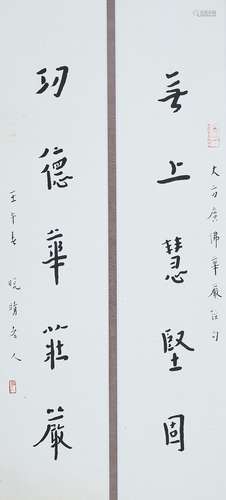 大方广佛华严经句
無上慧堅固
功德華莊嚴
壬午春 晚晴老人